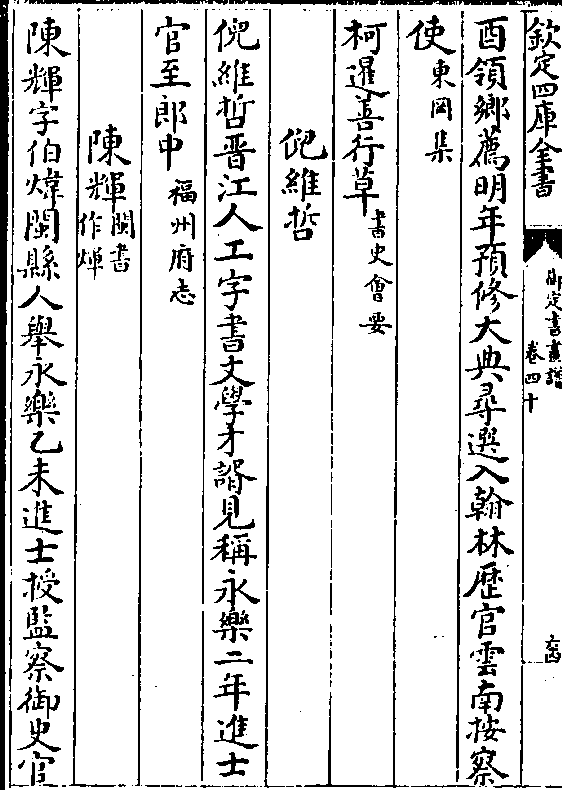 欽定四庫全書
御定書畫譜
卷四十
酉領鄉薦明年預修大典尋選入翰林歷官雲南按察
使東岡集
柯暹善行草書史會要
倪維哲
倪維哲晋江人工字書文學才諝見稱永樂二年進士
官至郎中福州府志
陳輝閩書作煇
陳輝字伯煒閩縣人舉永樂乙未進士授監察御史官